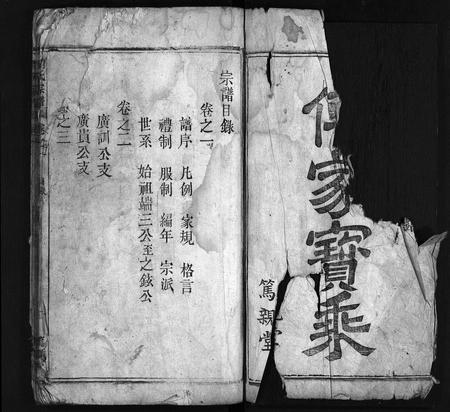 家寶乘
篤親堂
宗譜目錄
卷之一
譜序 凡例 家規 格言
禮制 服制 編年 宗派
世系 始祖端三公至之鉉公
卷之二
廣訓公支
廣貴公支
卷之三